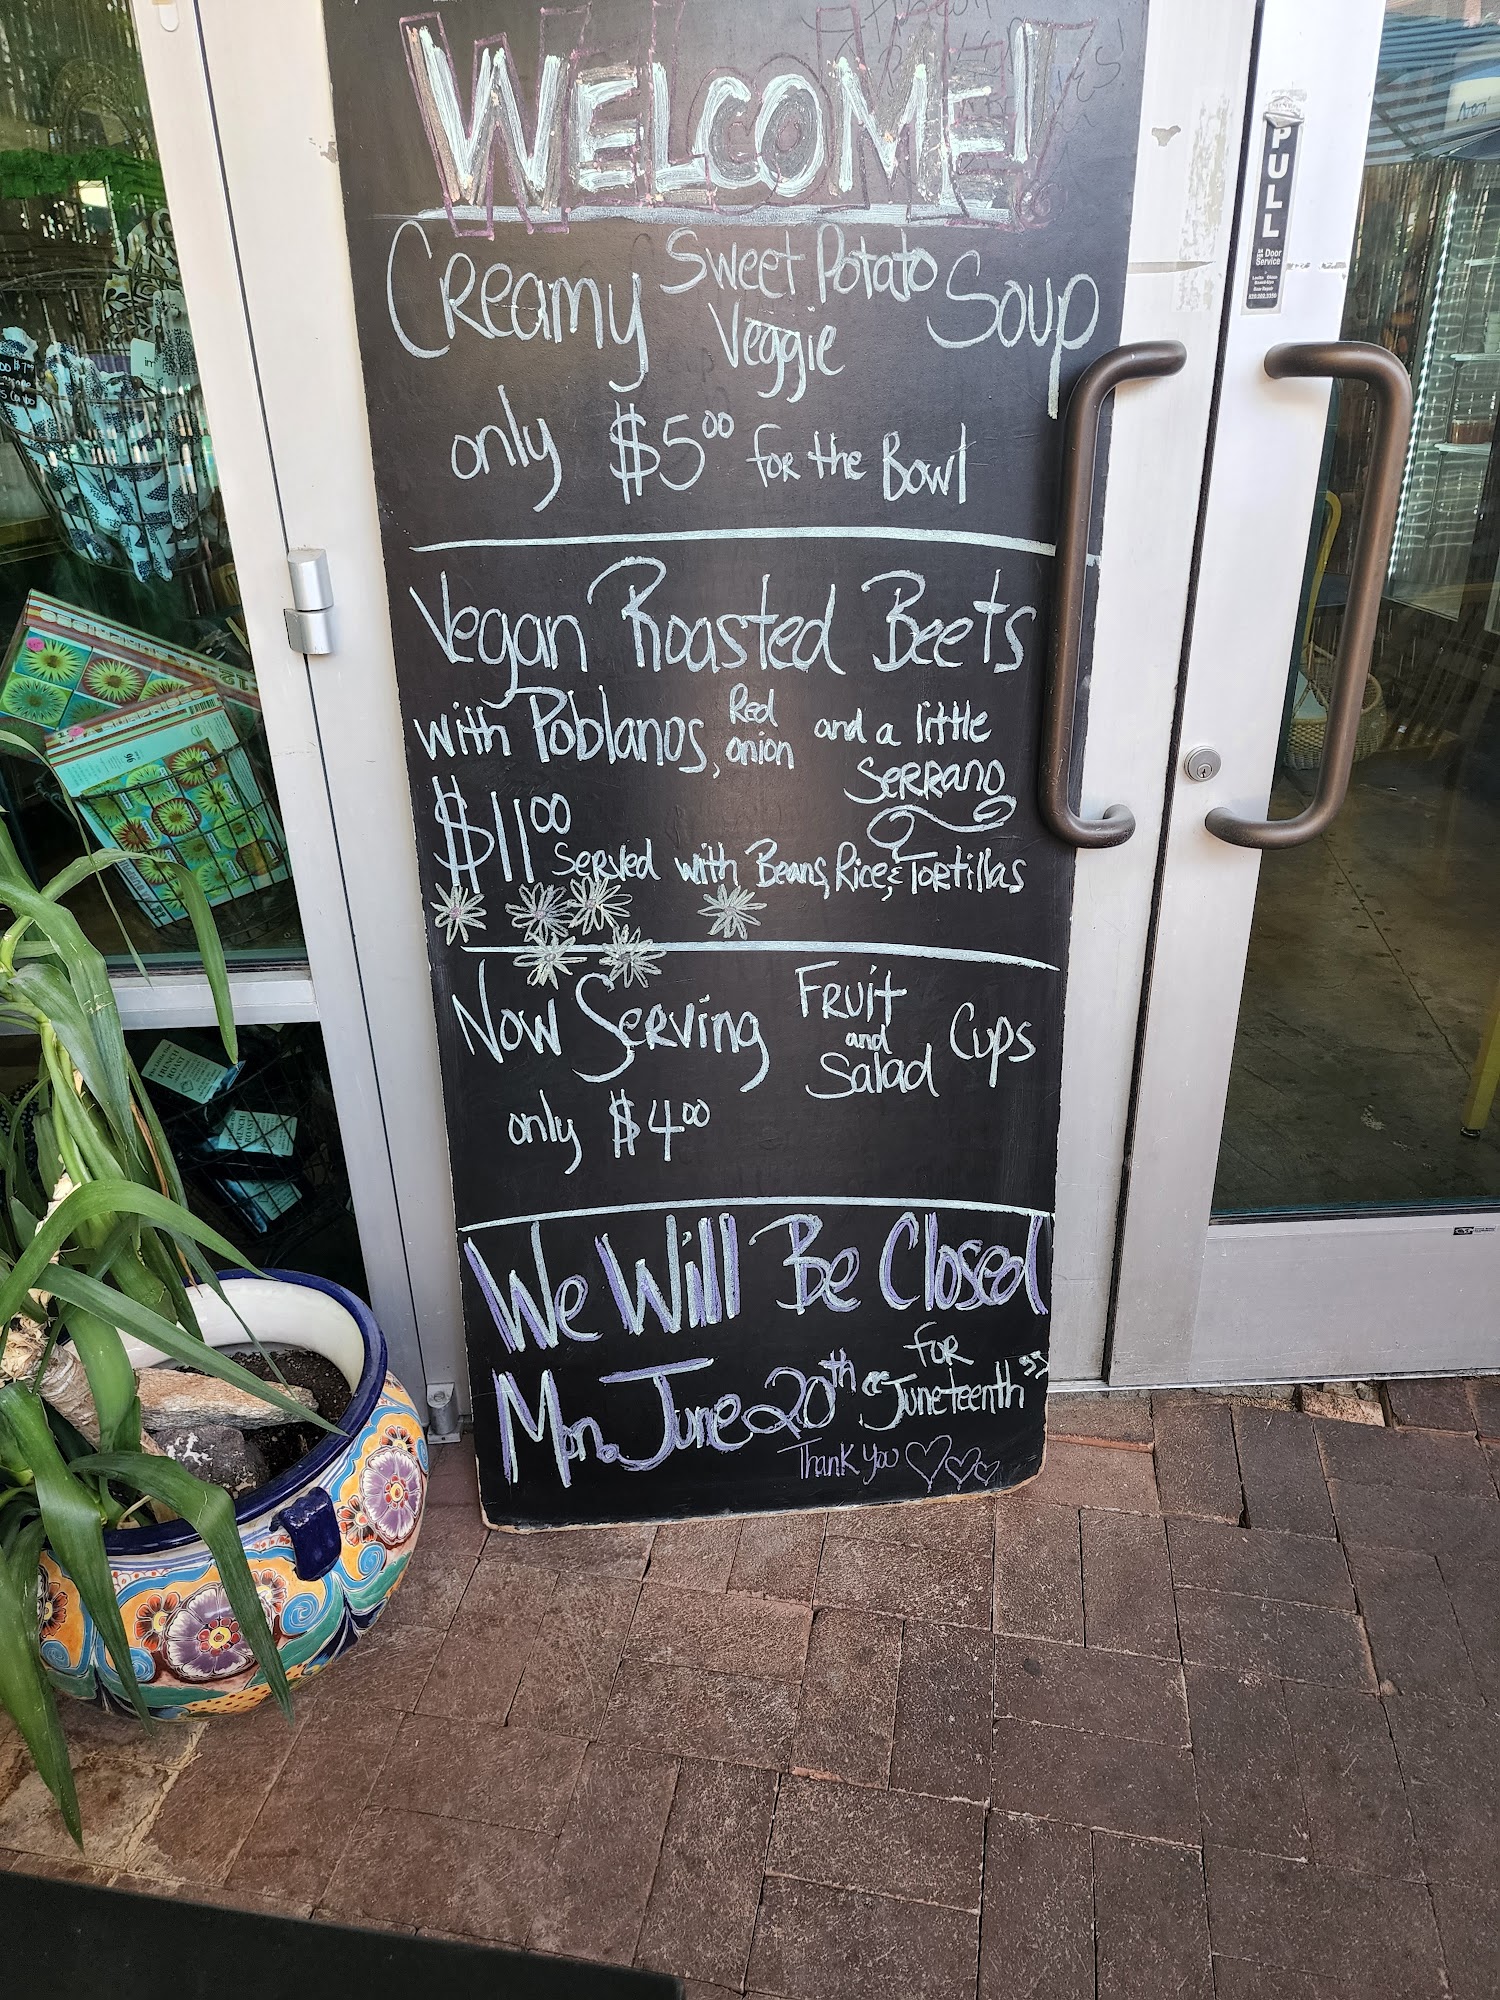 WELCOME!
Creamy Sweet Potato Veggie Soup
only $5.00 for the Bowl
Vegan Roasted Beets
with Poblanos, Red onion and a little
SERRANO
$11.00 Served with Beans, Rice, & Tortillas
Now Serving Fruit and Salad Cups
only $4.00
We Will Be Closed
Mon. June 20th for "Juneteenth"
Thank you
PULL
Door
Service
FRENCH
ROAST